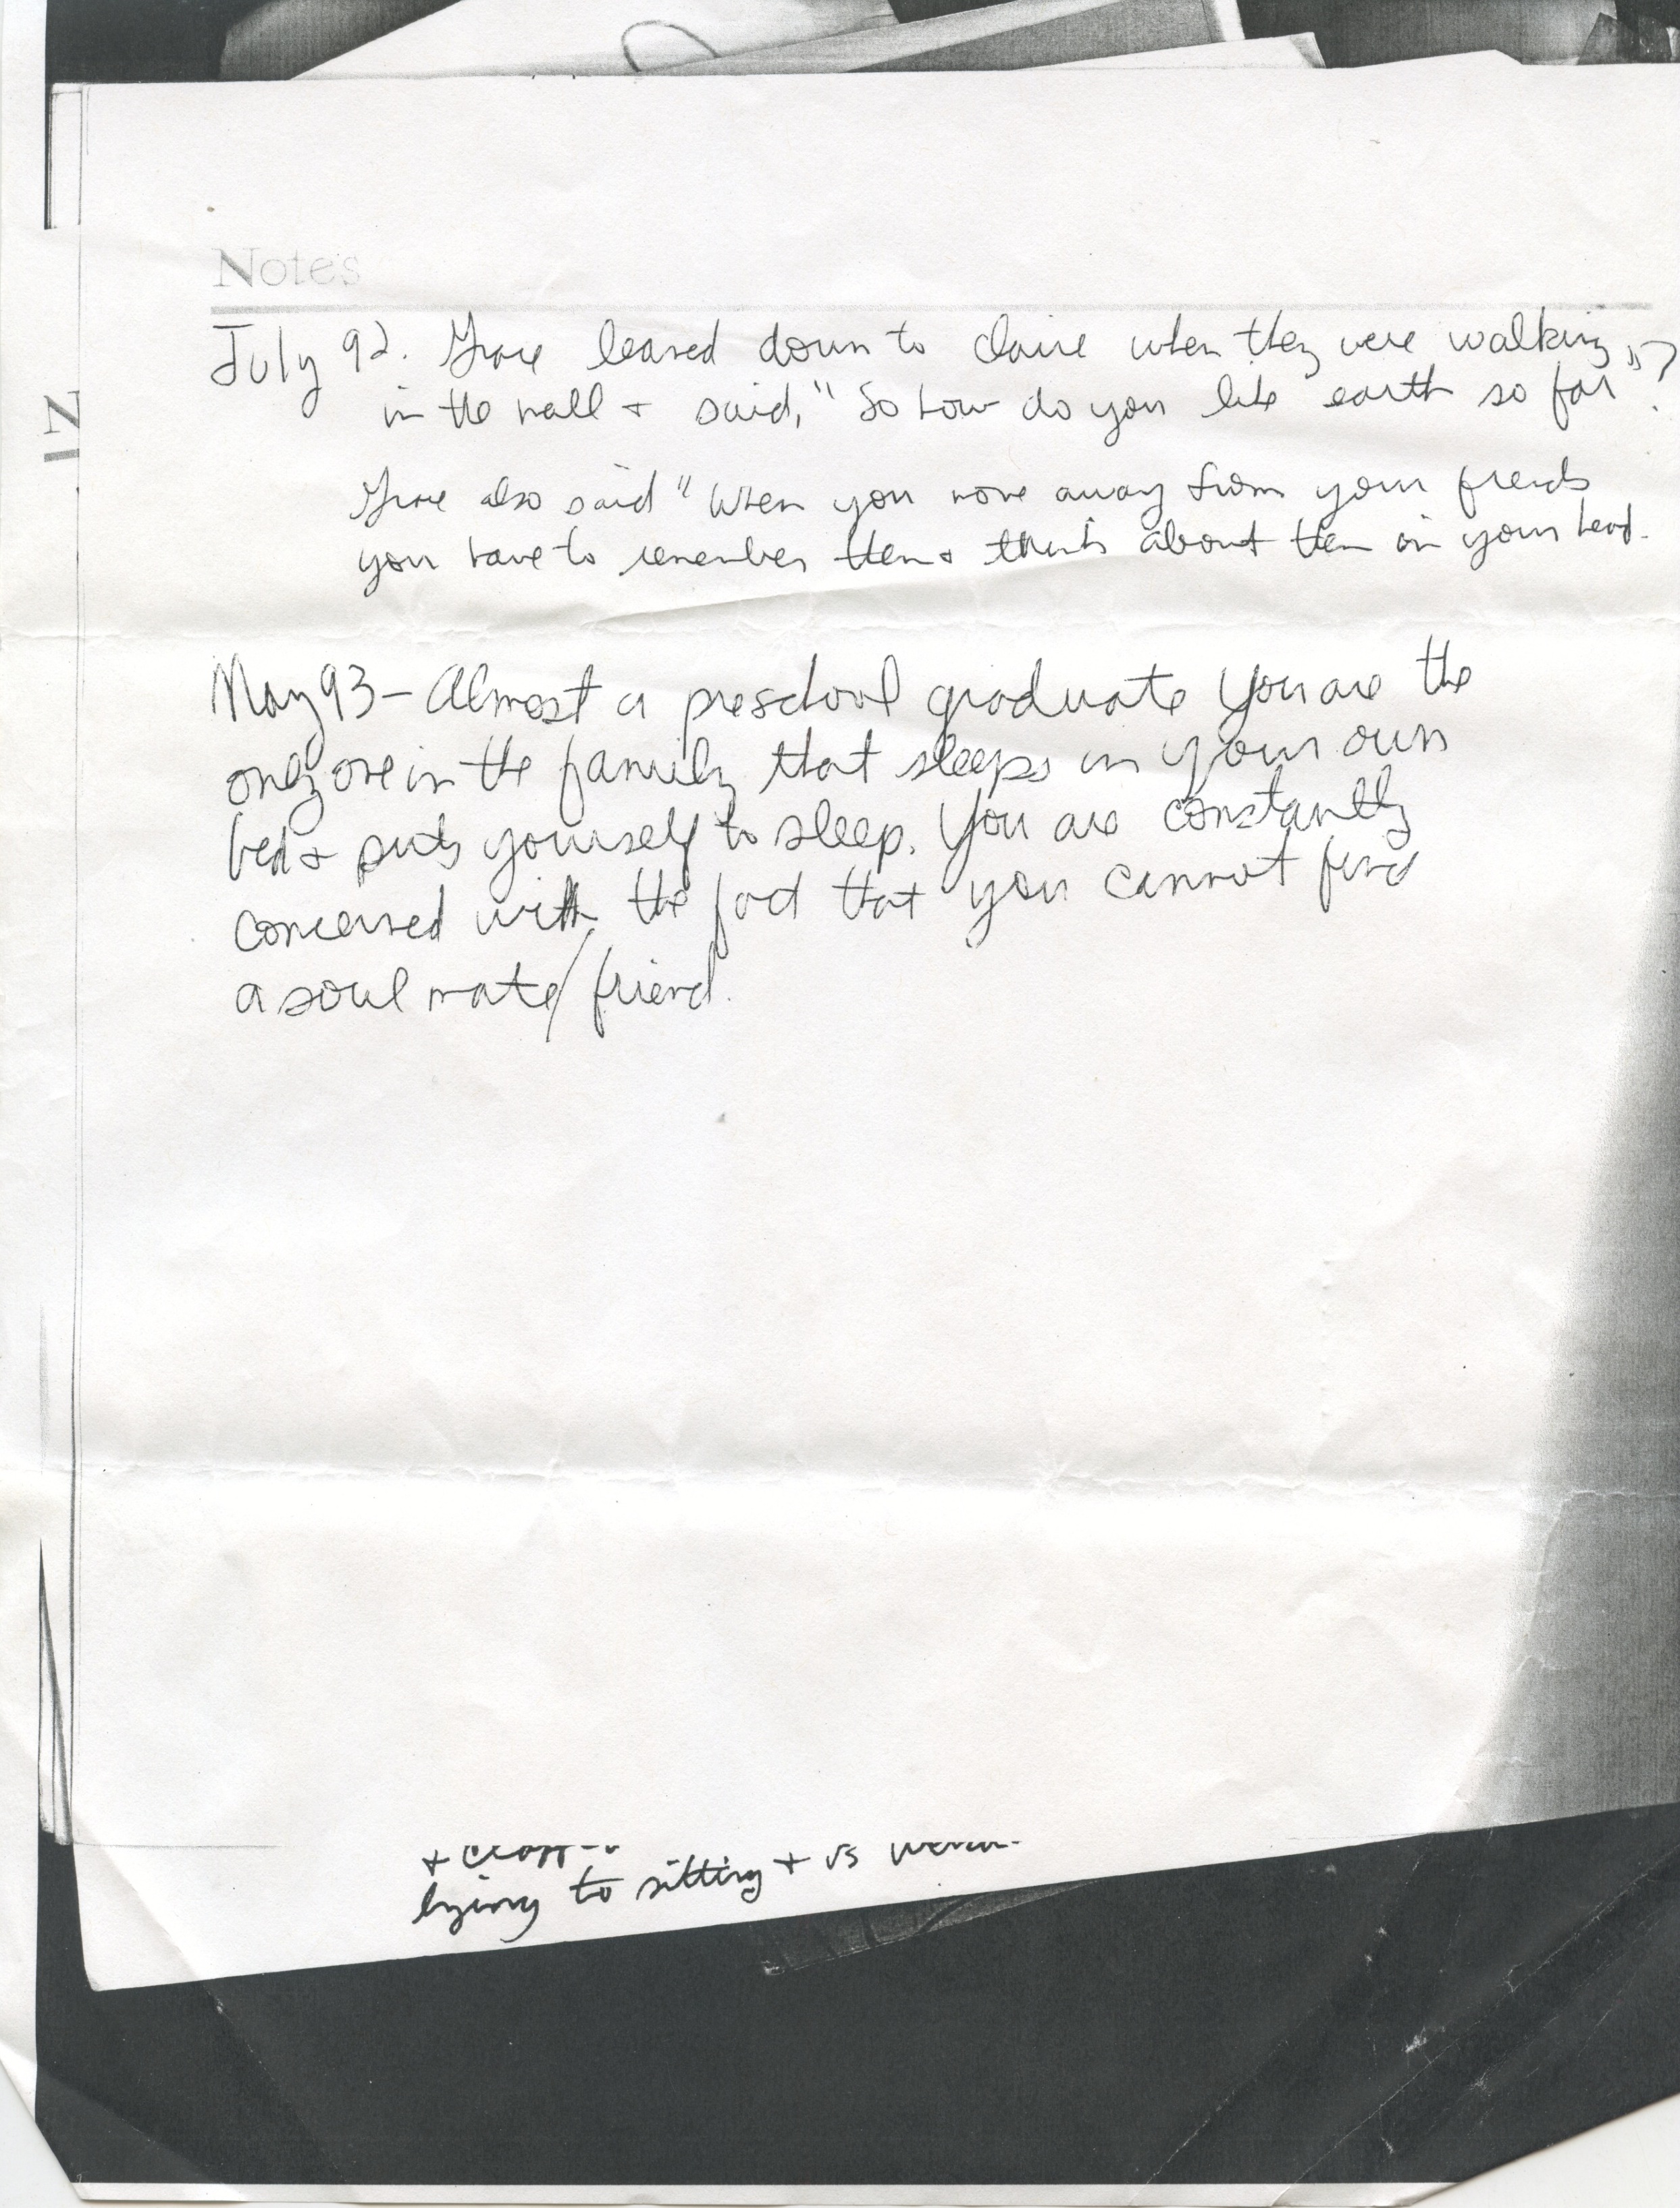 Notes
July 92. Grace leaned down to Claire when they were walking
in the mall + said, "So how do you like earth so far"?
Grace also said "When you move away from your friends
you have to remember them + think about them in your head.
May 93 - Almost a preschool graduate you are the
only one in the family that sleeps in your own
bed + puts yourself to sleep. You are constantly
concerned with the fact that you cannot find
a soul mate/friend.
lying to sitting + vs
N